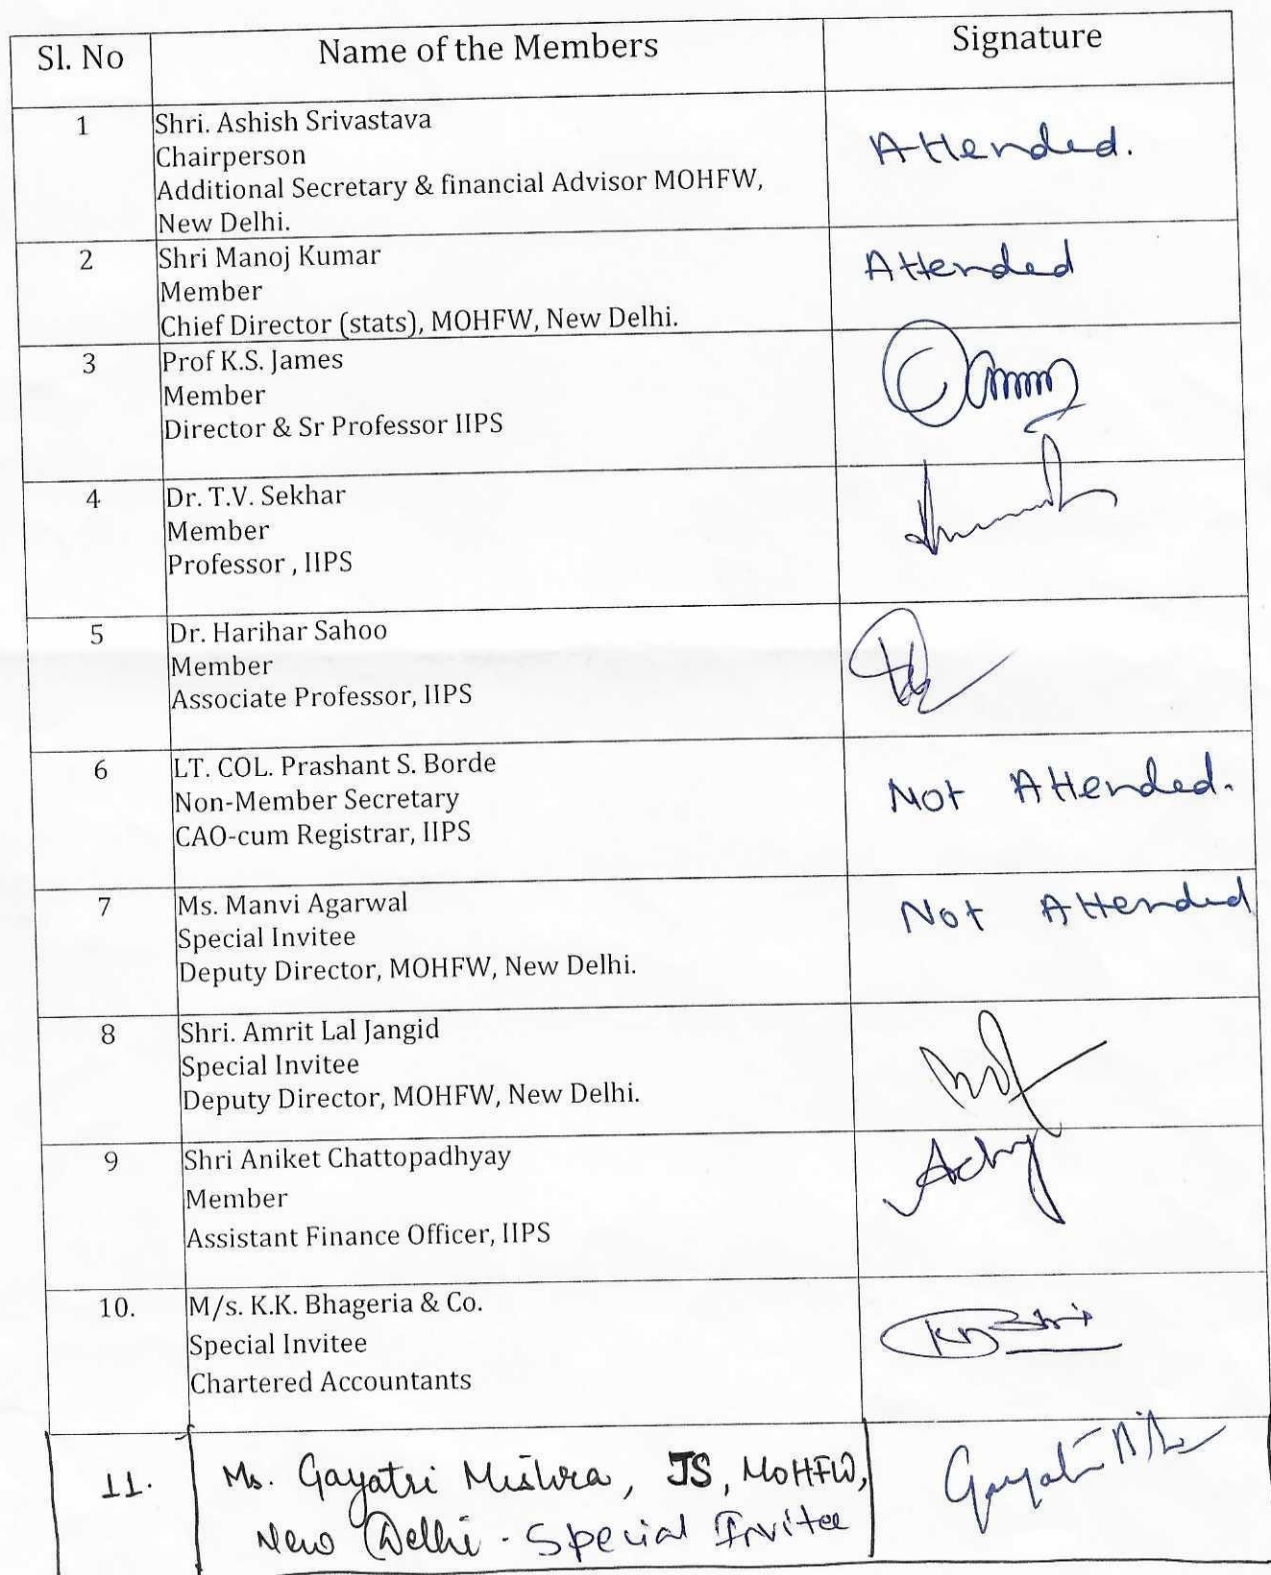 Sl. No Name of the Members Signature
1 Shri. Ashish Srivastava Attended.
Chairperson
Additional Secretary & financial Advisor MOHFW,
New Delhi.
2 Shri Manoj Kumar Attended
Member
Chief Director (stats), MOHFW, New Delhi.
3 Prof K.S. James
Member
Director & Sr Professor IIPS
4 Dr. T.V. Sekhar
Member
Professor , IIPS
5 Dr. Harihar Sahoo
Member
Associate Professor, IIPS
6 LT. COL. Prashant S. Borde Not Attended.
Non-Member Secretary
CAO-cum Registrar, IIPS
7 Ms. Manvi Agarwal Not Attended
Special Invitee
Deputy Director, MOHFW, New Delhi.
8 Shri. Amrit Lal Jangid
Special Invitee
Deputy Director, MOHFW, New Delhi.
9 Shri Aniket Chattopadhyay
Member
Assistant Finance Officer, IIPS
10. M/s. K.K. Bhageria & Co.
Special Invitee
Chartered Accountants
11. Ms. Gayatri Mishra, JS, MoHFW,
New Delhi - Special Invitee